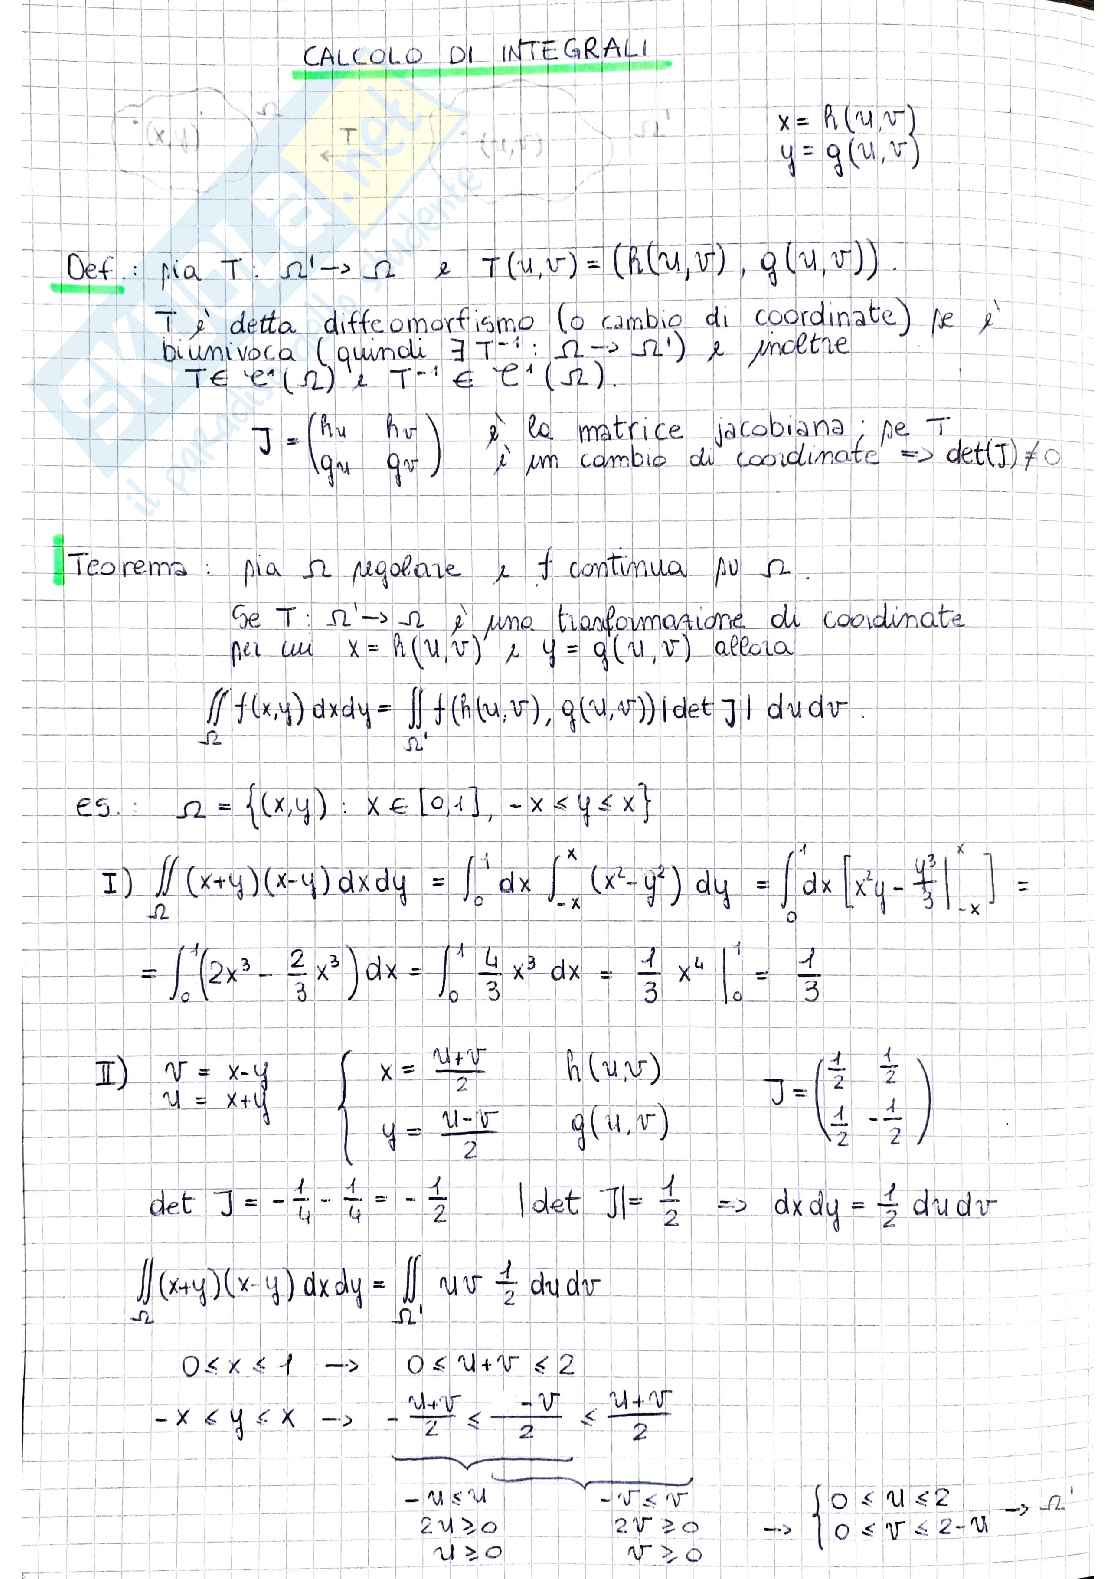 CALCOLO DI INTEGRALI
(x,y) Ω T (u,v) Ω'
x = h(u,v)
y = g(u,v)
SKUOLA.net
il paradiso dello studente
Def.: sia T: Ω' → Ω e T(u,v) = (h(u,v), g(u,v)).
T è detta diffeomorfismo (o cambio di coordinate) se è
biunivoca (quindi ∃ T⁻¹: Ω → Ω') e inoltre
T ∈ C¹(Ω) e T⁻¹ ∈ C¹(Ω).
J = (hu hv
gu gv) è la matrice jacobiana; se T
è un cambio di coordinate => det(J) ≠ 0
Teorema: sia Ω regolare e f continua su Ω.
Se T: Ω' → Ω è una trasformazione di coordinate
per cui x = h(u,v) e y = g(u,v) allora
∬_Ω f(x,y) dxdy = ∬_Ω' f(h(u,v), g(u,v)) |det J| dudv.
es.: Ω = {(x,y) : x ∈ [0,1], -x ≤ y ≤ x}
I) ∬_Ω (x+y)(x-y) dxdy = ∫₀¹ dx ∫_{-x}^{x} (x²-y²) dy = ∫₀¹ dx [x²y - y³/3 |_{-x}^{x}] =
= ∫₀¹ (2x³ - 2/3 x³) dx = ∫₀¹ 4/3 x³ dx = 1/3 x⁴ |₀¹ = 1/3
II) v = x-y
u = x+y
{ x = (u+v)/2 h(u,v)
y = (u-v)/2 g(u,v)
J = (1/2 1/2
1/2 -1/2)
det J = -1/4 - 1/4 = -1/2 |det J| = 1/2 => dxdy = 1/2 dudv
∬_Ω (x+y)(x-y) dxdy = ∬_Ω' uv 1/2 dudv
0 ≤ x ≤ 1 → 0 ≤ u+v ≤ 2
-x ≤ y ≤ x → -(u+v)/2 ≤ -v/2 ≤ (u+v)/2
-u ≤ u -v ≤ v
2u ≥ 0 2v ≥ 0
u ≥ 0 v ≥ 0
→ { 0 ≤ u ≤ 2
0 ≤ v ≤ 2-u → Ω'